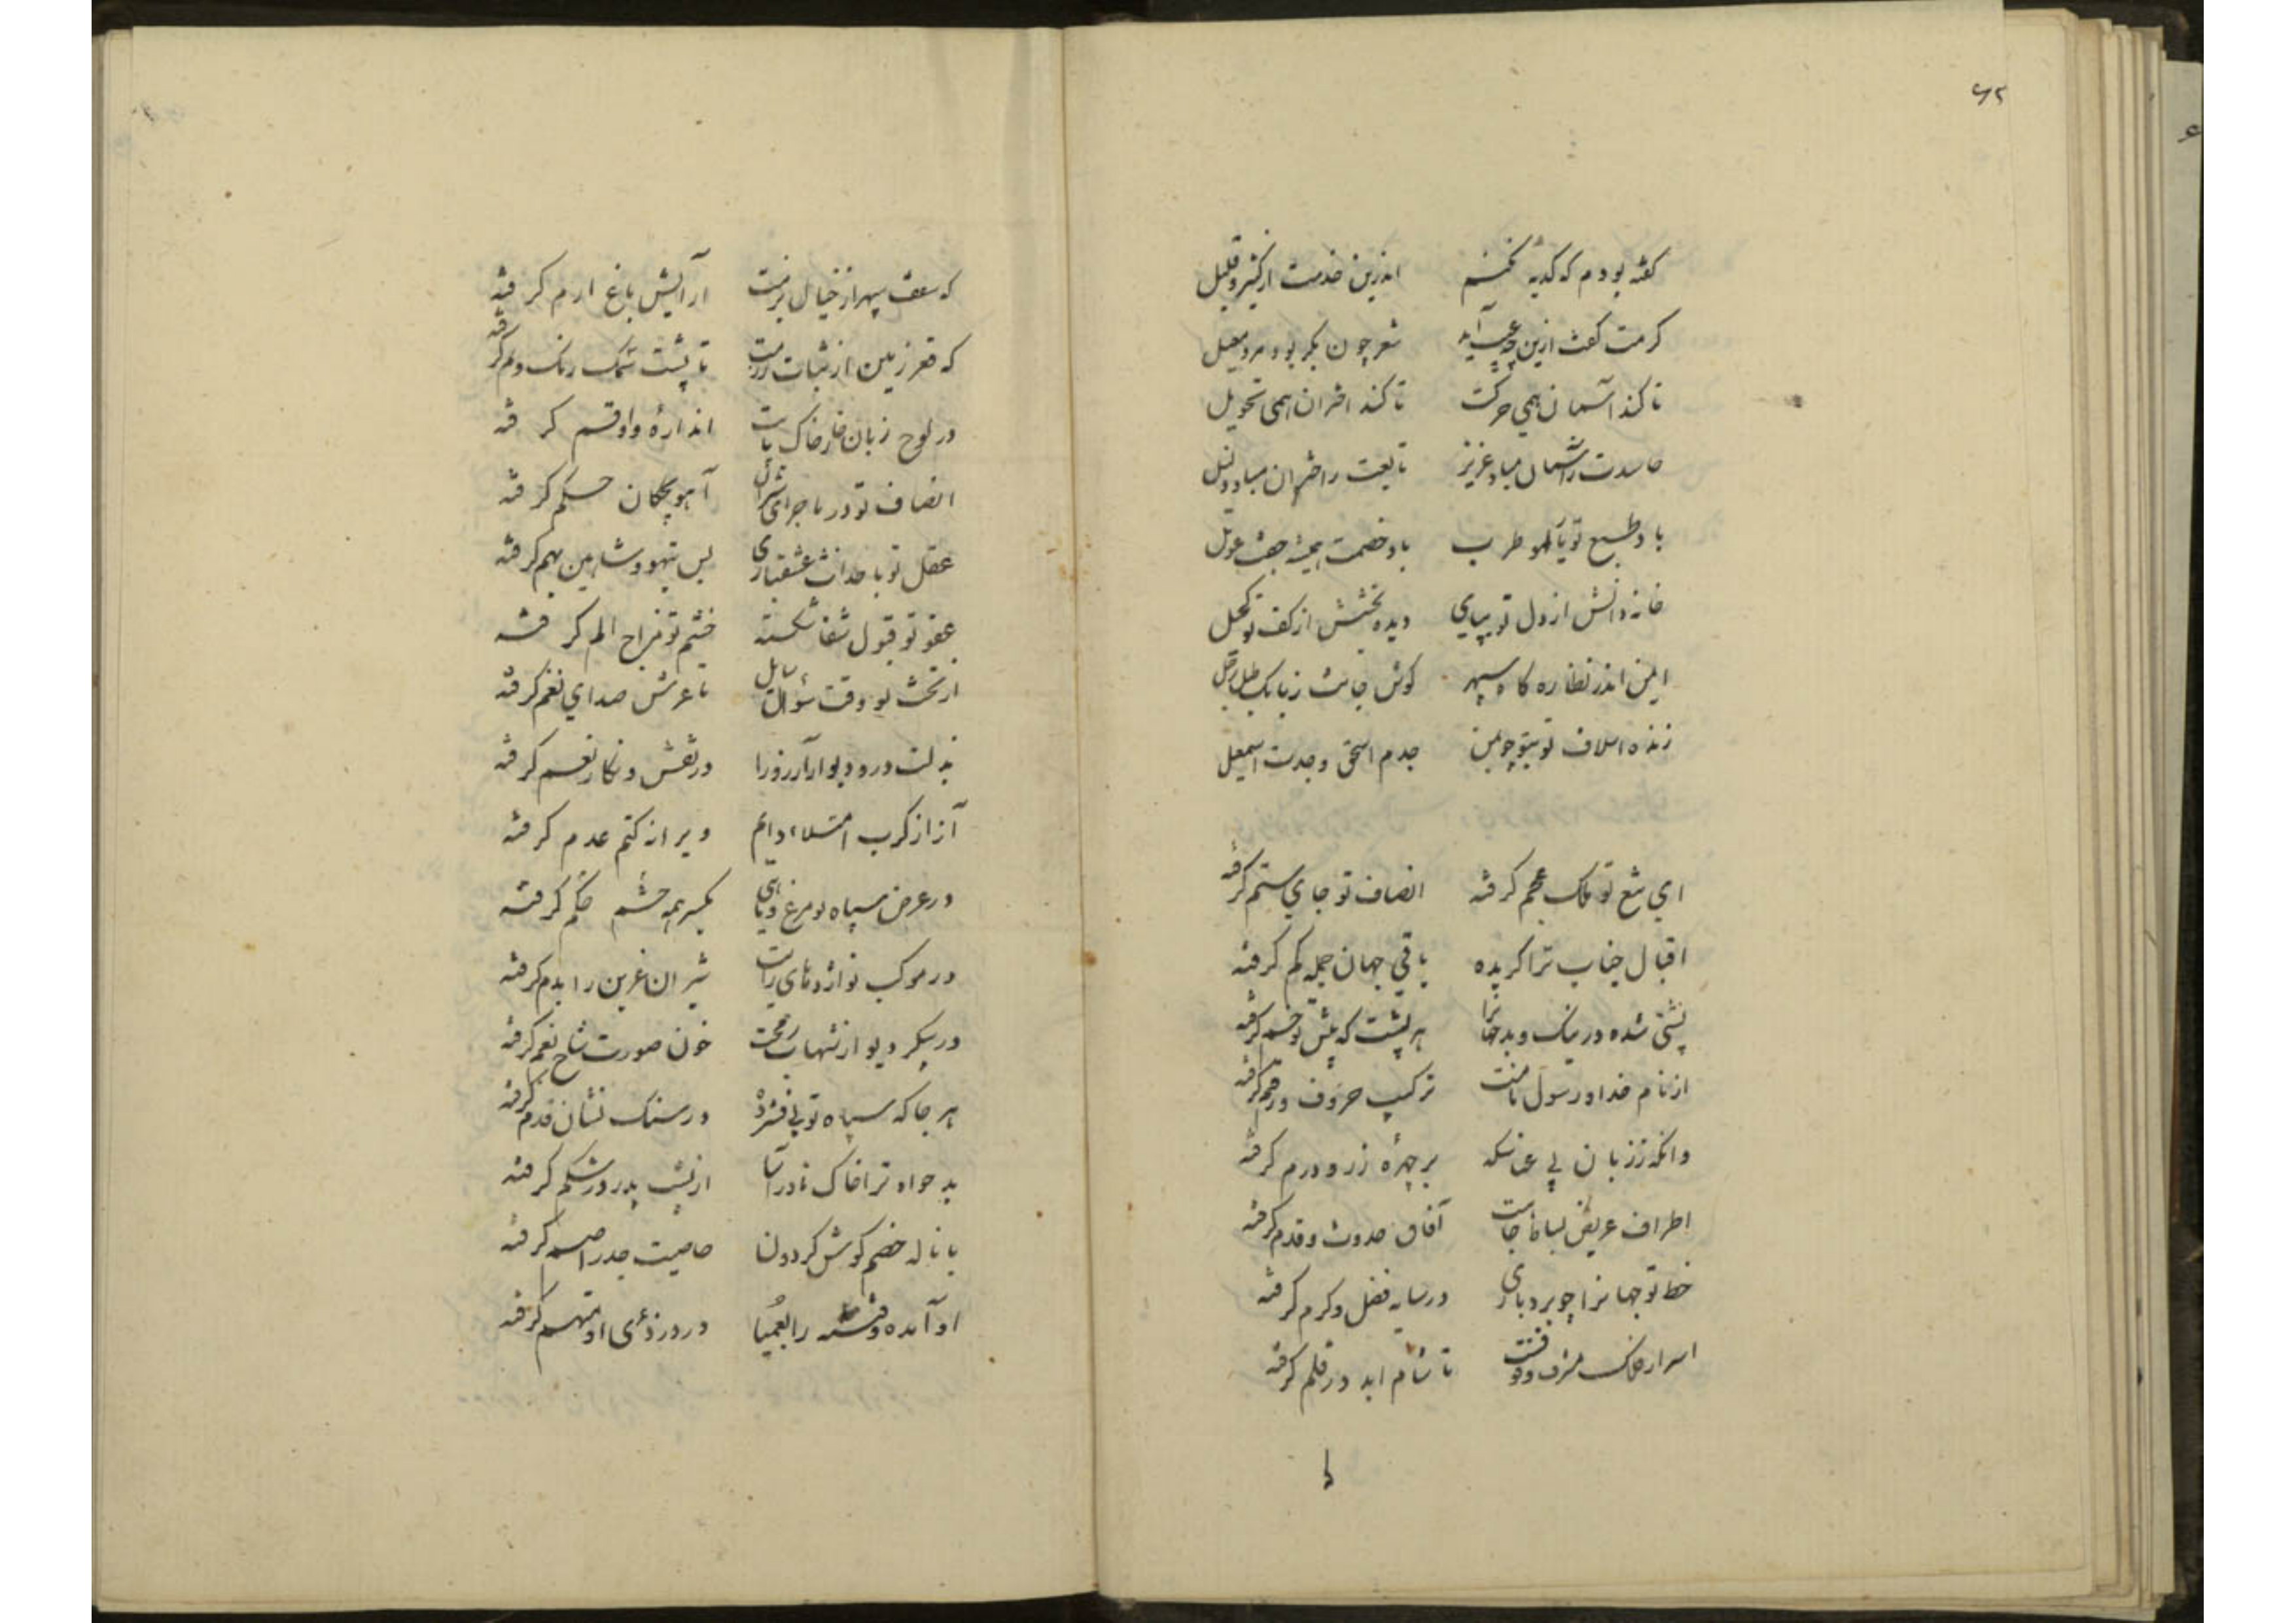 ۶۲
گفته بودم که کدیه نکنم اندرین خدمت از کثیر و قلیل
کرمت گفت ازین چه عیب آید شعر چون بکر بود مرد معیل
تا کند آسمان همی حرکت تا کند اختران همی تحویل
حاسدت را آسمان مباد عزیز تابعت را اختران مباد ذلیل
باد طبع تو با لهو طرب باد خصمت همیشه جفت عویل
خانه دانش از دل تو بپای دیده بخشش از کف تو کحیل
ایمن اندر نظاره کاه سپهر کوش جانت ز بانک طبل رحیل
زنده اسلاف تو بتو چو بمن جدم اسحق و جدت اسمعیل
ای تیغ تو ملک عجم کرفته انصاف تو جای ستم کرفته
اقبال جناب ترا کزیده باقی جهان جمله کم کرفته
پشتی شده در نیک و بد جهانرا هر پشت که پیش تو خم کرفته
از نام خدا و رسول نامت ترکیب حروف و رقم کرفته
وانکه ز زبان پی سکه بر چهره زر و درم کرفته
اطراف عریض بساط جاهت آفاق حدوث و قدم کرفته
خط تو جهانرا چو بردباری در سایه فضل و کرم کرفته
اسرار فلک مشرف وقوفت تا شام ابد در قلم کرفته
که سقف سپهر از خیال بزمت آرایش باغ ارم کرفته
که قعر زمین از ثبات رزمت تا پشت سمک رنک و نم کرفته
در لوح زبان خار خاک پایت اندازه واو قسم کرفته
انصاف تو در ماجرای شیران آهو بچکان حکم کرفته
عقل تو با حداث عشقبازی بس تیهو و شاهین بهم کرفته
عفو تو قبول شفا شکسته خشم تو مزاج الم کرفته
از بخت تو وقت سؤال سایل تا عرش صدای نعم کرفته
بذلت در و دیوار آرزو را در نقش و نکار نعم کرفته
آز از کرب امتلاء دایم ویرا ز کتم عدم کرفته
در عرض سپاه تو مرغ و ماهی یکسر همه حشم کرفته
در موکب تو اژدهای رایت شیران عرین را بدم کرفته
در پیکر دیو از شهاب رمحت خون صورت شاخ بقم کرفته
هر جا که سپاه تو پی فشرده در سنک نشان قدم کرفته
بدخواه ترا خاک مادر آسا از پشت پدر در شکم کرفته
با ناله خصم کوش کردونت خاصیت جذر اصم کرفته
او آمده و فتنه را بعمیا در دزدی او متهم کرفته